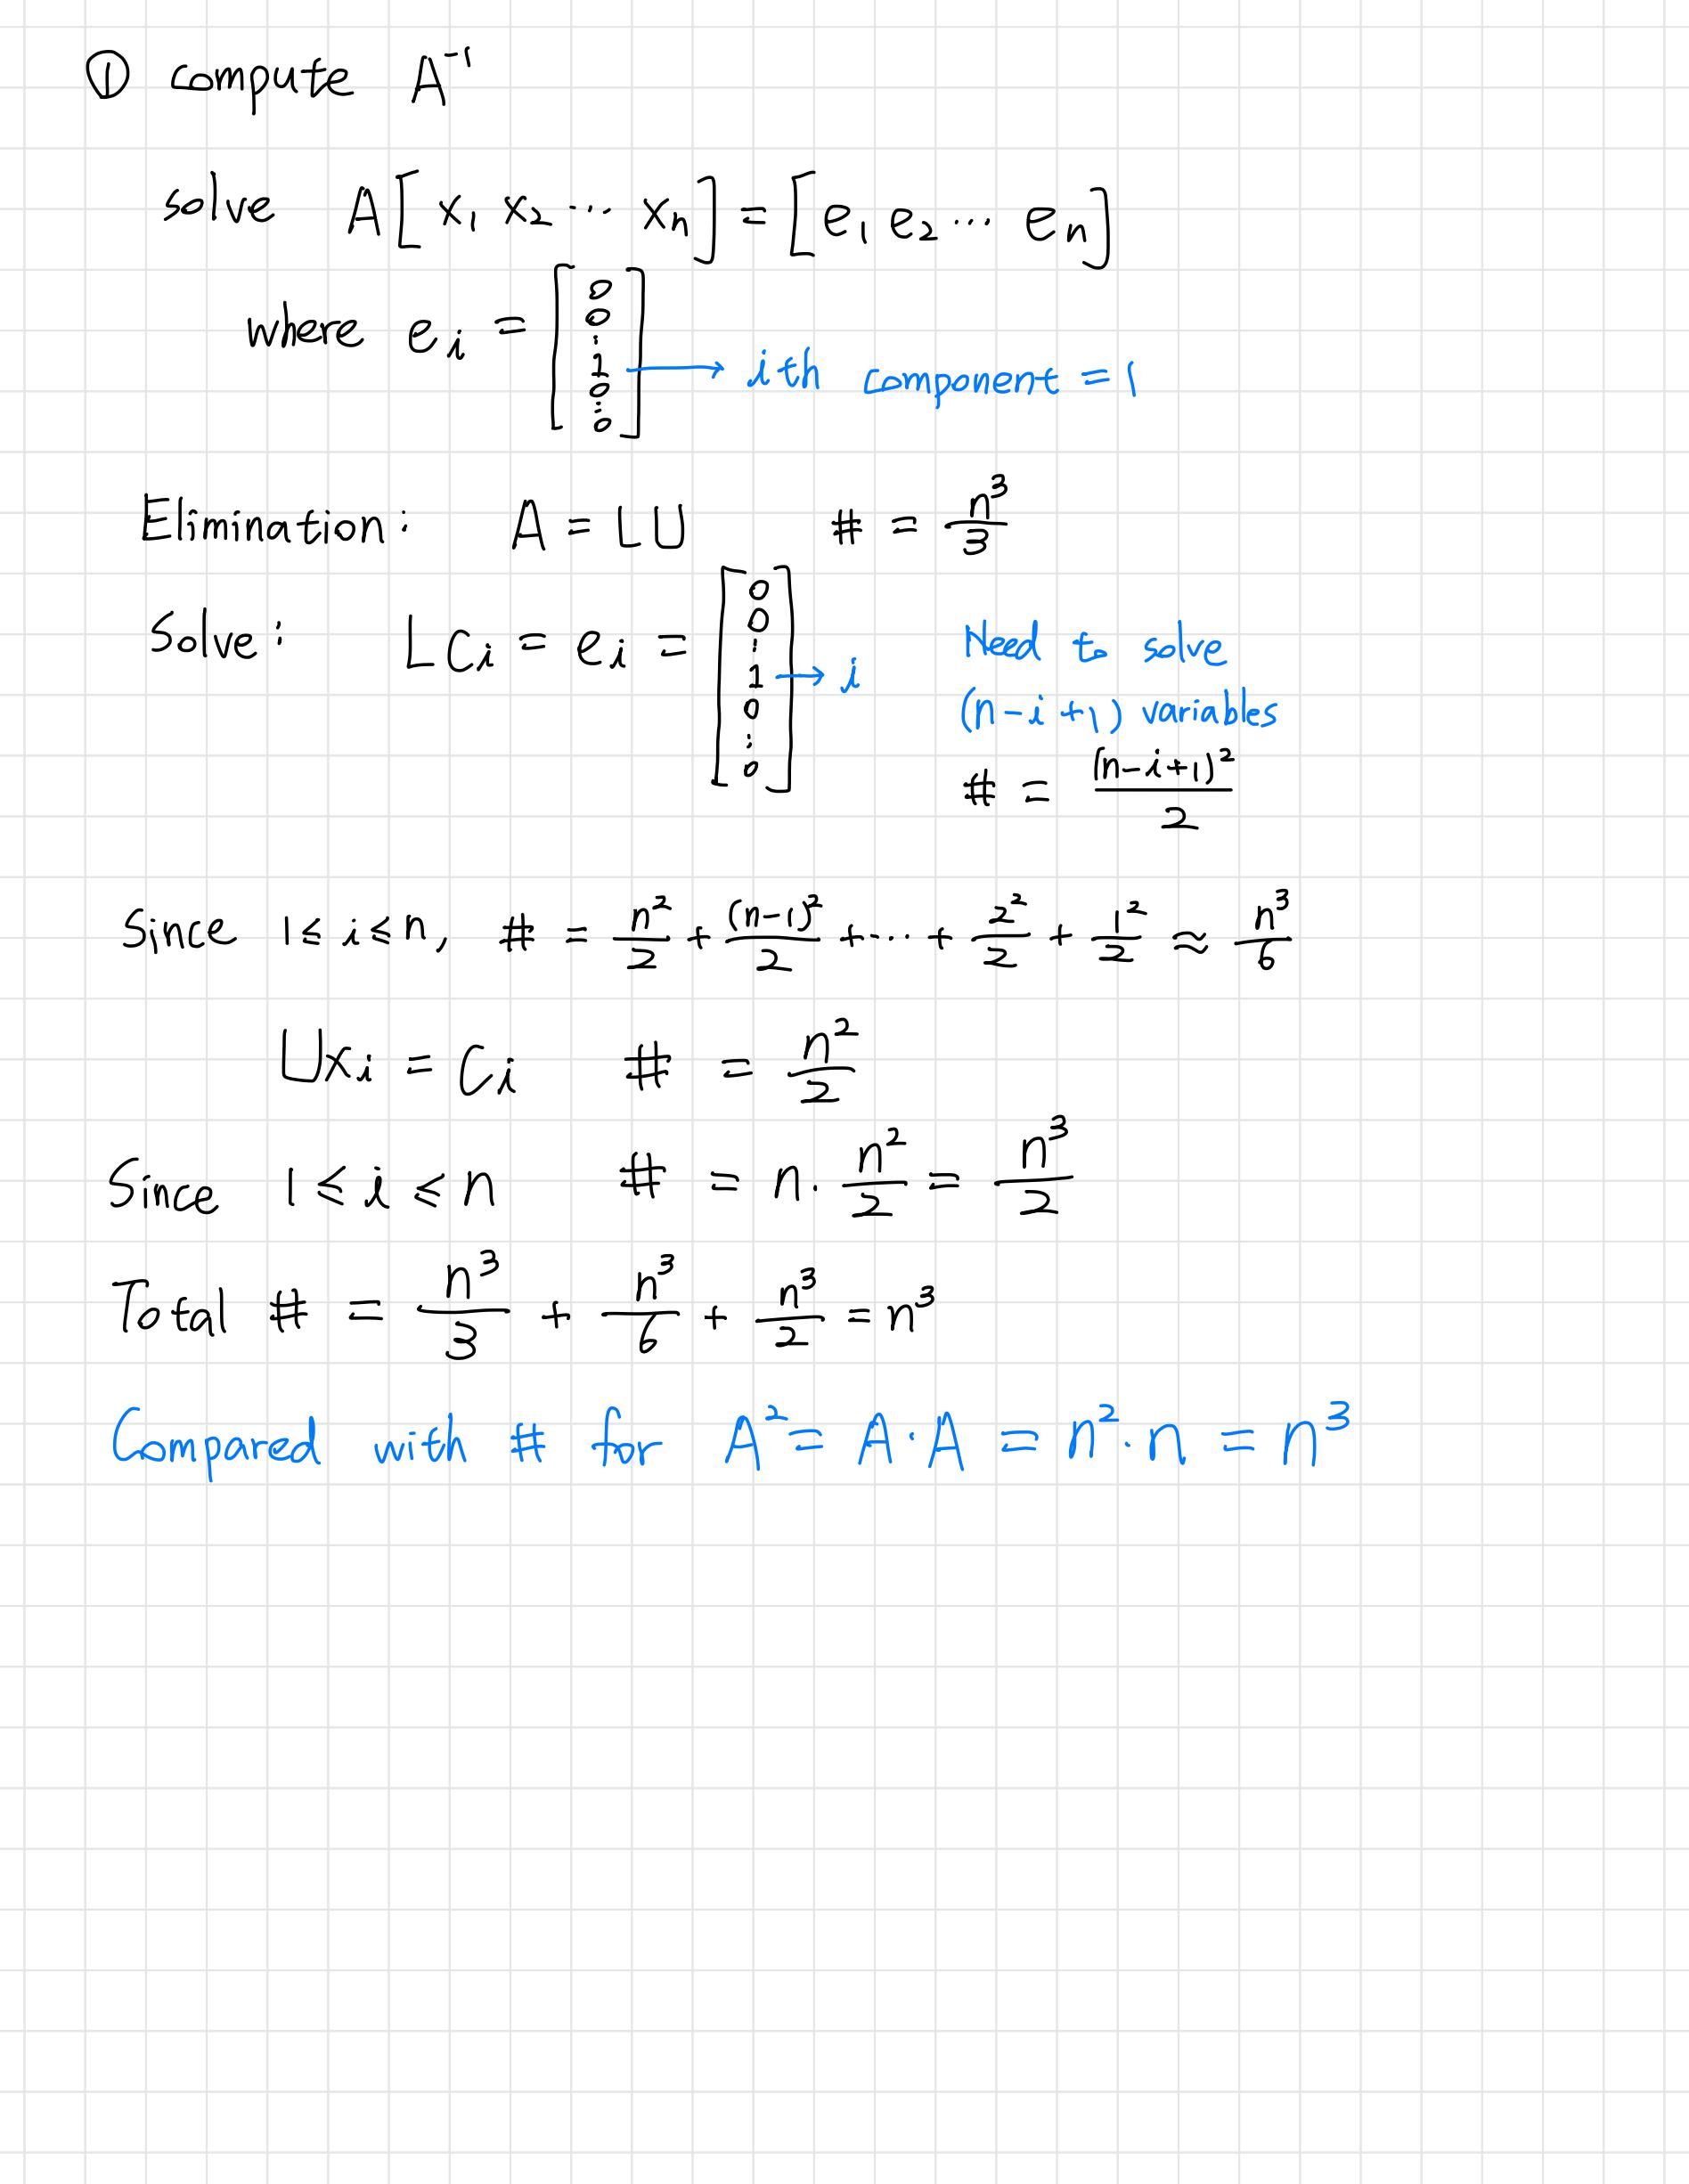 ① compute A⁻¹
solve A[x₁ x₂ ⋯ xₙ] = [e₁ e₂ ⋯ eₙ]
where eᵢ = [0 0 ⋮ 1 0 ⋮ 0] → ith component = 1
Elimination: A = LU # = n³/3
Solve: Lcᵢ = eᵢ = [0 0 ⋮ 1 0 ⋮ 0] → i
Need to solve
(n-i+1) variables
# = (n-i+1)²/2
Since 1 ≤ i ≤ n, # = n²/2 + (n-1)²/2 + ⋯ + 2²/2 + 1²/2 ≈ n³/6
Uxᵢ = cᵢ # = n²/2
Since 1 ≤ i ≤ n # = n · n²/2 = n³/2
Total # = n³/3 + n³/6 + n³/2 = n³
Compared with # for A² = A·A = n²·n = n³